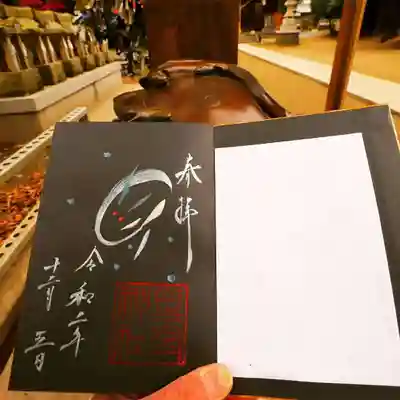 奉拝
令和二年
十二月
三日